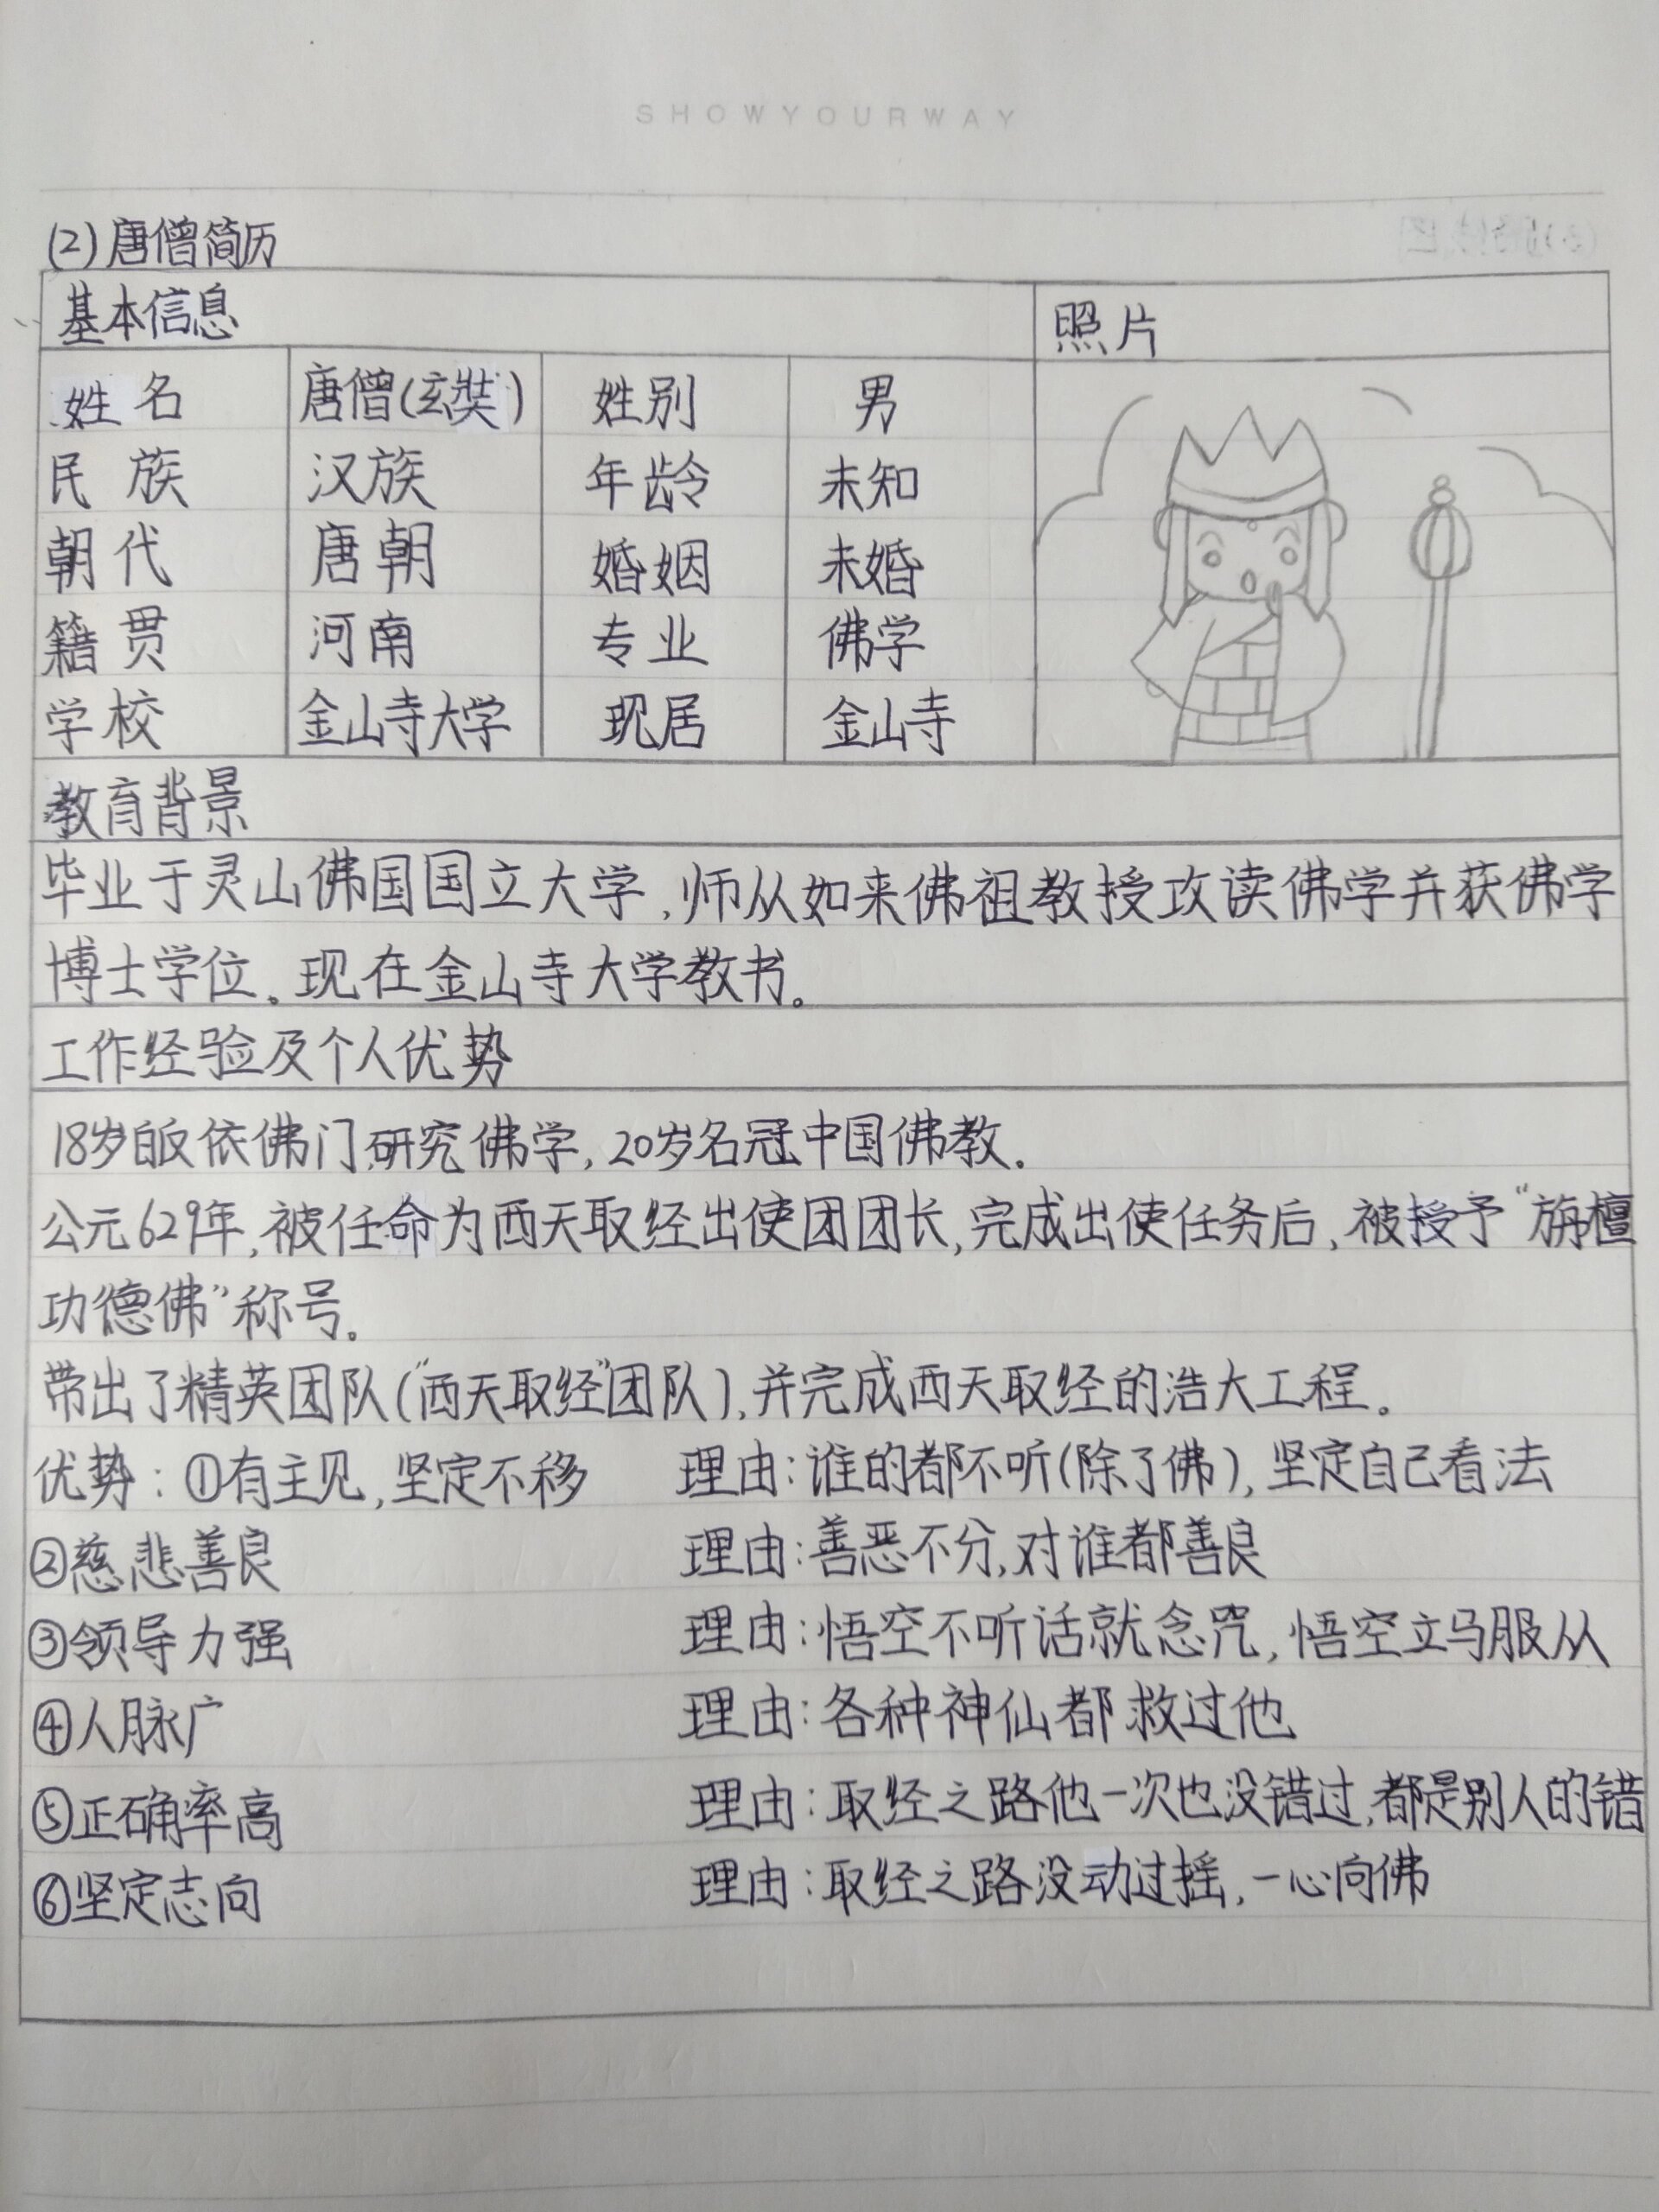 SHOWYOURWAY
(2)唐僧简历
基本信息 照片
姓名 唐僧(玄奘) 姓别 男
民族 汉族 年龄 未知
朝代 唐朝 婚姻 未婚
籍贯 河南 专业 佛学
学校 金山寺大学 现居 金山寺
教育背景
毕业于灵山佛国国立大学,师从如来佛祖教授攻读佛学并获佛学
博士学位。现在金山寺大学教书。
工作经验及个人优势
18岁皈依佛门研究佛学,20岁名冠中国佛教.
公元629年,被任命为西天取经出使团团长,完成出使任务后,被授予“旃檀
功德佛”称号。
带出了精英团队(“西天取经”团队),并完成西天取经的浩大工程.
优势:①有主见,坚定不移 理由:谁的都不听(除了佛),坚定自己看法
②慈悲善良 理由:善恶不分,对谁都善良
③领导力强 理由:悟空不听话就念咒,悟空立马服从
④人脉广 理由:各种神仙都救过他
⑤正确率高 理由:取经之路他一次也没错过,都是别人的错
⑥坚定志向 理由:取经之路没动过摇,一心向佛